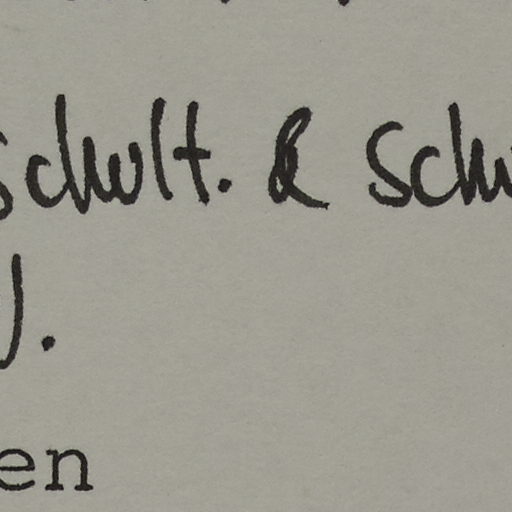 Schult. & Sch
).
en